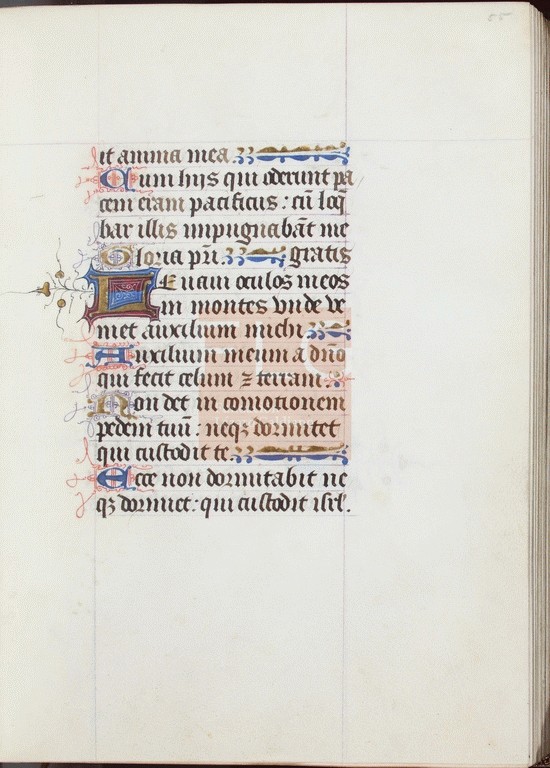 it anima mea.
Cum hijs qui oderunt pa
cem eram pacificus : cū loq̄
bar illis impugnabāt me
Gloria pr̄i. gratis
Leuaui oculos meos
in montes vnde ve
niet auxilium michi.
Auxilium meum a dn̄o
qui fecit celum ⁊ terram.
Non det in comotionem
pedem tuū : neqȝ dormitet
qui custodit te.
Ecce non dormitabit ne
qȝ dormiet : qui custodit isrl̄.